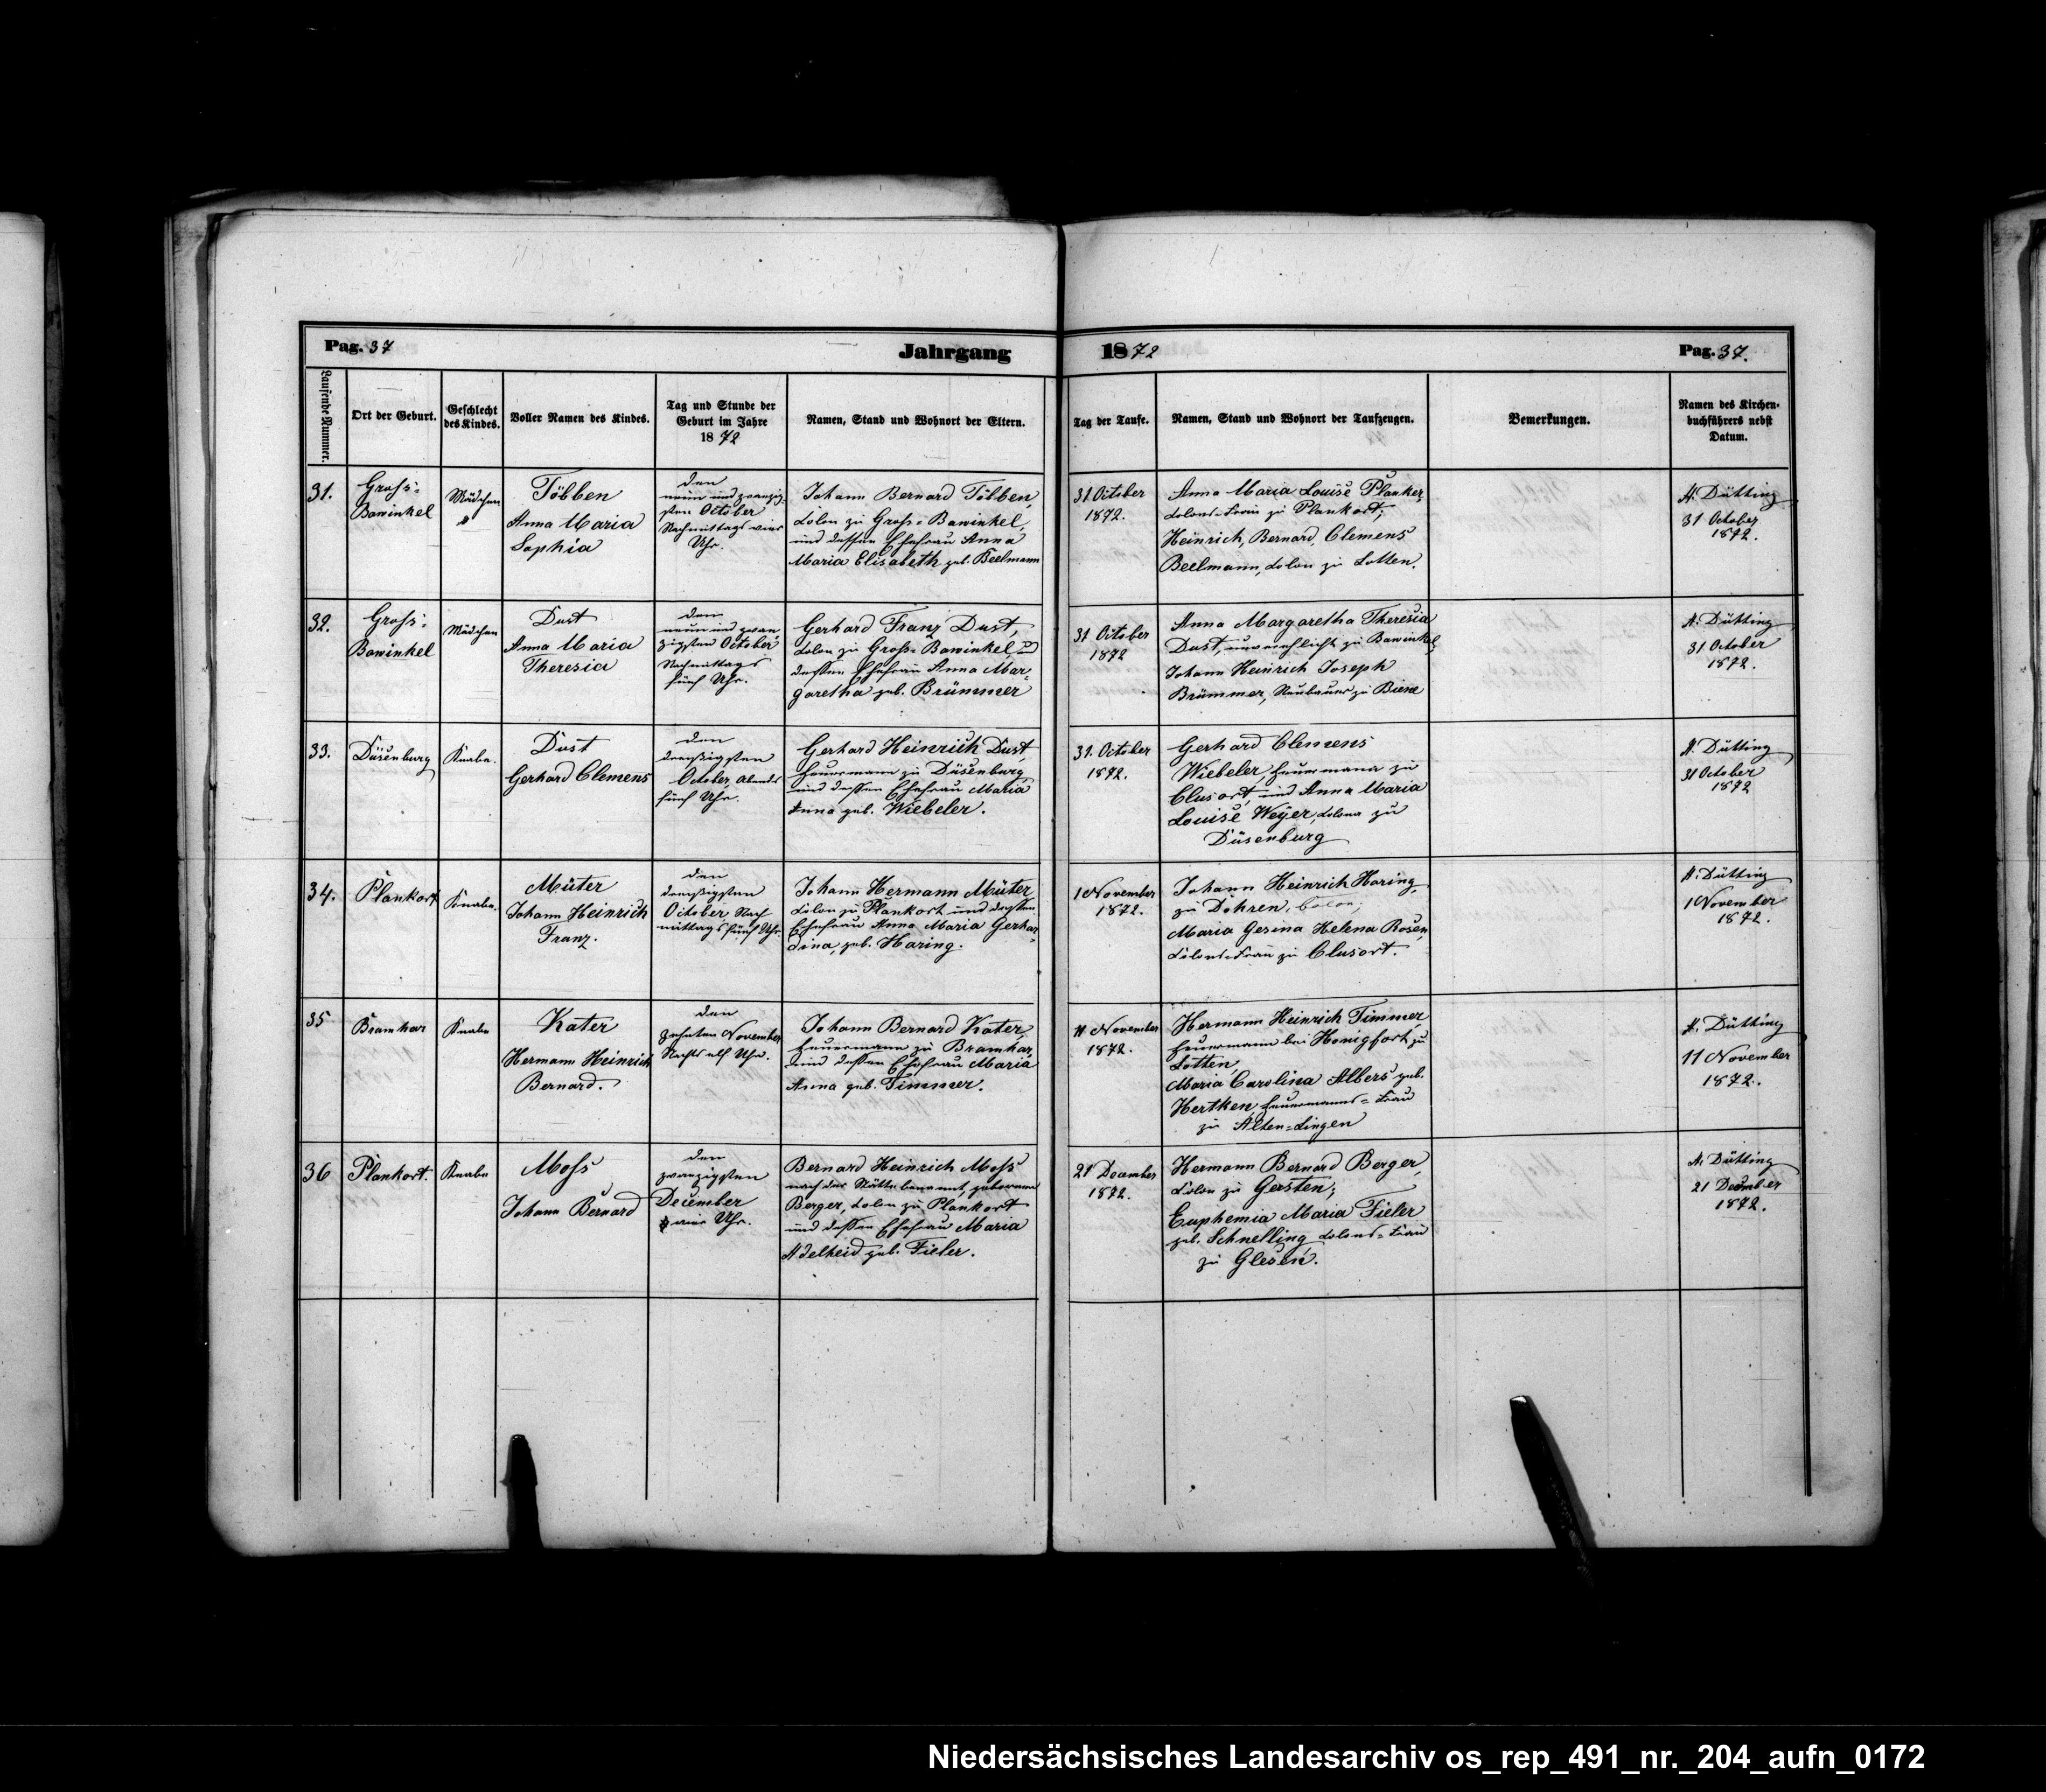 Pag. 37
Jahrgang
1872
Pag. 37.
Laufende Nummer.
Ort der Geburt.
Geschlecht
des Kindes.
Voller Namen des Kindes.
Tag und Stunde der
Geburt im Jahre
1872
Namen, Stand und Wohnort der Eltern.
Tag der Taufe.
Namen, Stand und Wohnort der Taufzeugen.
Bemerkungen.
Namen des Kirchen-
buchführers nebst
Datum.
31.
Gross-
Bawinkel
Mädchen
Többen
Anna Maria
Sophia
den
neun und zwanzig-
sten October
Nachmittags vier
Uhr.
Johann Bernard Többen,
Colon zu Gross-Bawinkel,
und dessen Ehefrau Anna
Maria Elisabeth geb. Beelmann
31 October
1872.
Anna Maria Louise Planker,
Colons-Frau zu Plankort;
Heinrich, Bernard, Clemens
Beelmann, Colon zu Lotten.
H. Dütting
31 October
1872.
32.
Gross-
Bawinkel
Mädchen
Dust
Anna Maria
Theresia
den
neun und zwan
zigsten October
Nachmittags
fünf Uhr.
Gerhard Franz Dust,
Colon zu Gross-Bawinkel und
dessen Ehefrau Anna Mar-
garetha geb. Brümmer
31 October
1872
Anna Margaretha Theresia
Dust, unverehlicht zu Bawinkel;
Johann Heinrich Joseph
Brümmer, Neubauer zu Biene
H. Dütting
31 October
1872.
33.
Düsenburg
Knabe.
Dust
Gerhard Clemens
den
dreißigsten
October, Abends
fünf Uhr.
Gerhard Heinrich Dust,
Heuermann zu Düsenburg
und dessen Ehefrau Maria
Anna geb. Wiebeler.
31. October
1872.
Gerhard Clemens
Wiebeler, Heuermann zu
Clusort, und Anna Maria
Louise Weÿer, Colona zu
Düsenburg
H. Dütting
31 October
1872
34.
Plankort
Knabe.
Müter
Johann Heinrich
Franz.
den
dreißigsten
October, Nach
mittags fünf Uhr.
Johann Hermann Müter
Colon zu Plankort und dessen
Ehefrau Anna Maria Gerhar-
dina, geb. Haring.
1 November
1872.
Johann Heinrich Haring,
zu Dohren, Colon;
Maria Gesina Helena Rosen,
Colons-Frau zu Clusort.
H. Dütting
1 November
1872.
35
Bramhar
Knabe
Kater
Hermann Heinrich
Bernard.
den
zehnten November
Nachts elf Uhr.
Johann Bernard Kater,
Heuermann zu Bramhar,
und dessen Ehefrau Maria
Anna geb. Timmer.
11 November
1872.
Hermann Heinrich Timmer,
Heuermann bei Honigfort, zu
Lotten,
Maria Carolina Albers geb.
Hertken, Heuermanns-Frau
zu Alten-Lingen
H. Dütting
11 November
1872.
36
Plankort.
Knabe
Moss
Johann Bernard
den
zwanzigsten
December
vier Uhr.
Bernard Heinrich Moss
nach der Stätte benannt, geborener
Berger, Colon zu Plankort
und dessen Ehefrau Maria
Adelheid geb. Fieler.
21 December
1872.
Hermann Bernard Berger,
Colon zu Gersten;
Euphemia Maria Fieler
geb. Schnelling Colons-Frau
zu Glesen.
H. Dütting
21 December
1872.
Niedersächsisches Landesarchiv os_rep_491_nr._204_aufn_0172